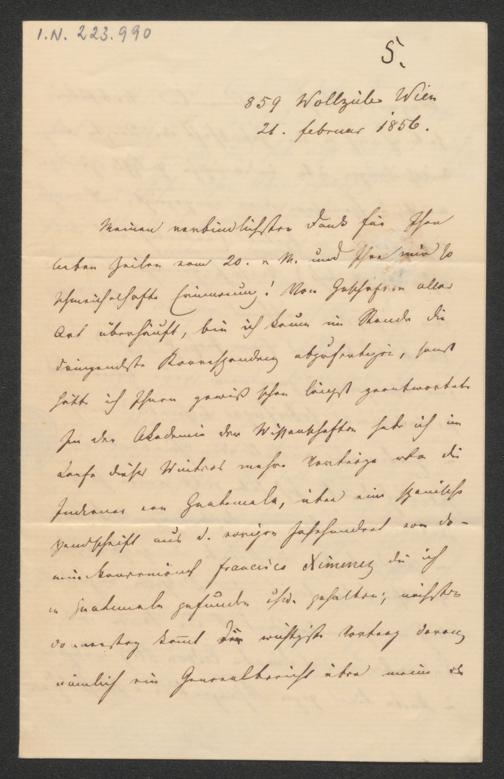 I.N. 223.990
5.
859 Wollzeile Wien
21. Februar 1856.
Meinen verbindlichsten Dank für Ihre
lieben Zeilen vom 20. v. M. und Ihre mir so
schmeichelhafte Erinnerung! Von Geschäften aller
Art überhäuft, bin ich kaum im Stande die
dringendste Korrespondenz abzufertigen, sonst
hätte ich Ihnen gewiß schon längst geantwortet.
In der Akademie der Wissenschaften habe ich im
Laufe dieses Winters mehre Vorträge über die
Indianer von Guatemala, über eine spanische
Handschrift aus d. vorigen Jahrhundert vom Do-
minikanermönch Francisco Ximenez die ich
in Guatemala gefunden gehalten; nächsten
Donnerstag kommt der wichtigste Vortrag daran,
nämlich ein Generalbericht über meine